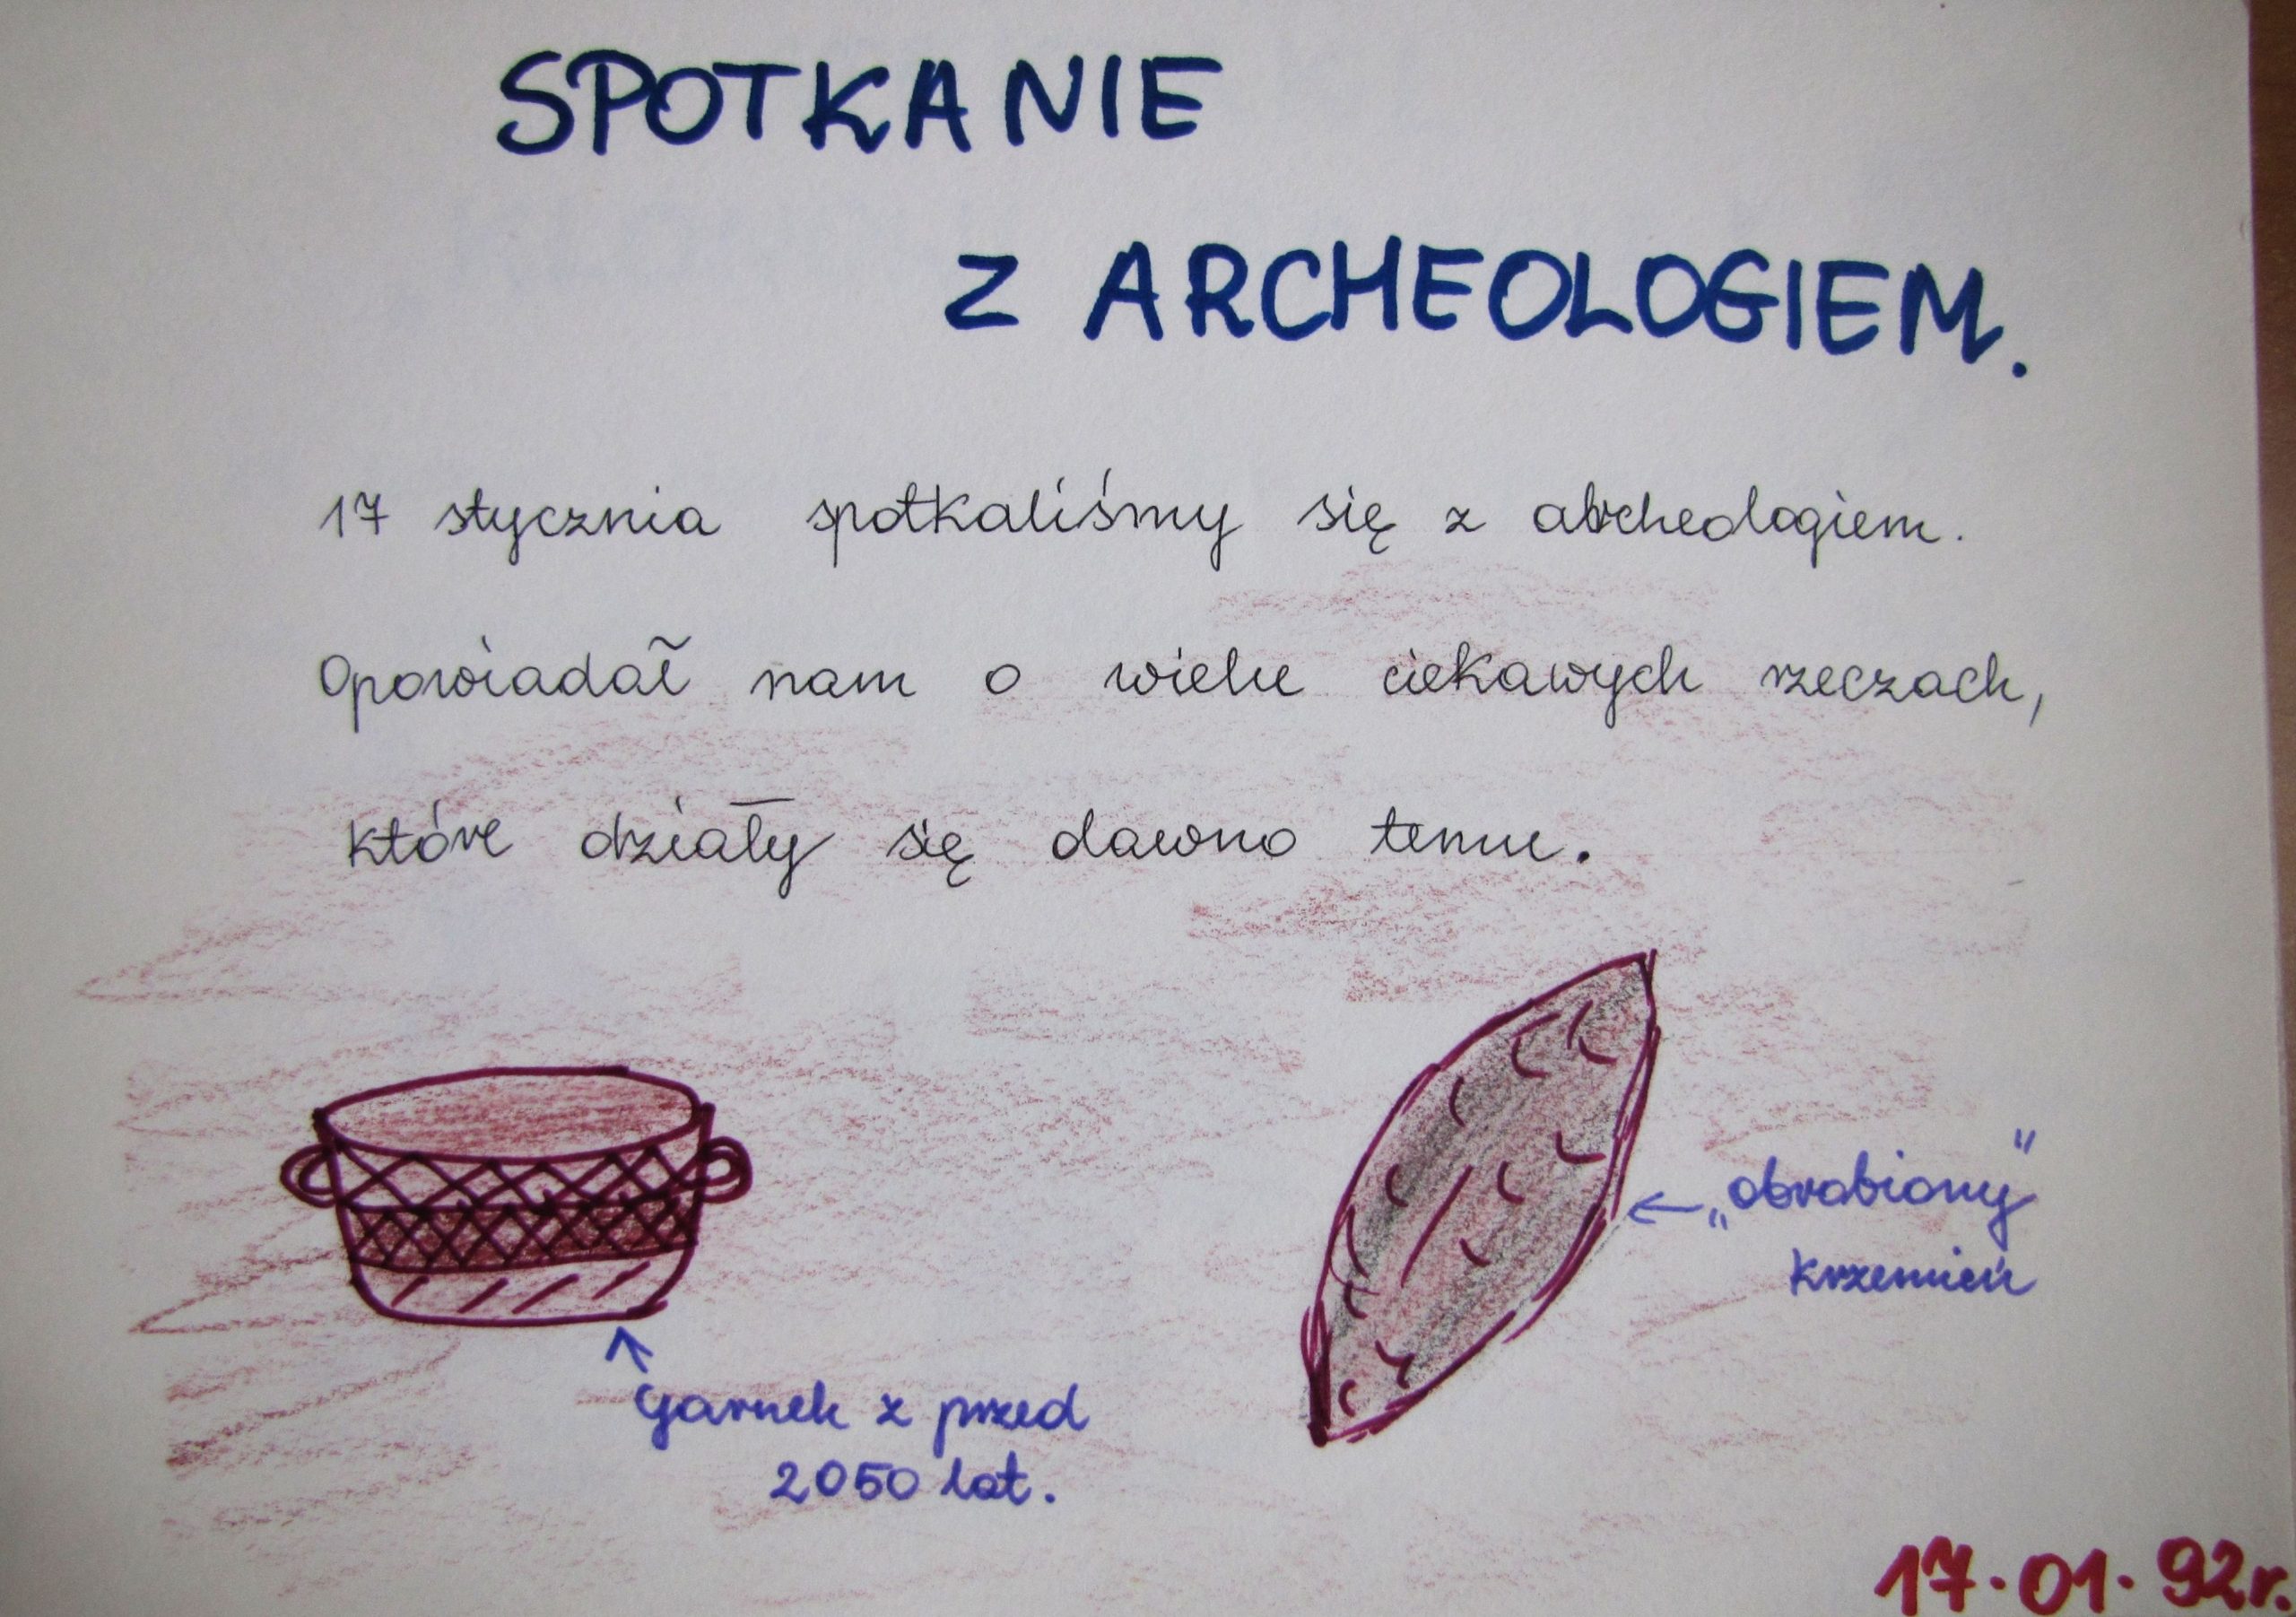 SPOTKANIE
Z ARCHEOLOGIEM.
17 stycznia spotkaliśmy się z archeologiem.
Opowiadał nam o wielu ciekawych rzeczach,
które działy się dawno temu.
„obrabiony"
krzemień
Garnek z przed
2050 lat.
17.01.92r.